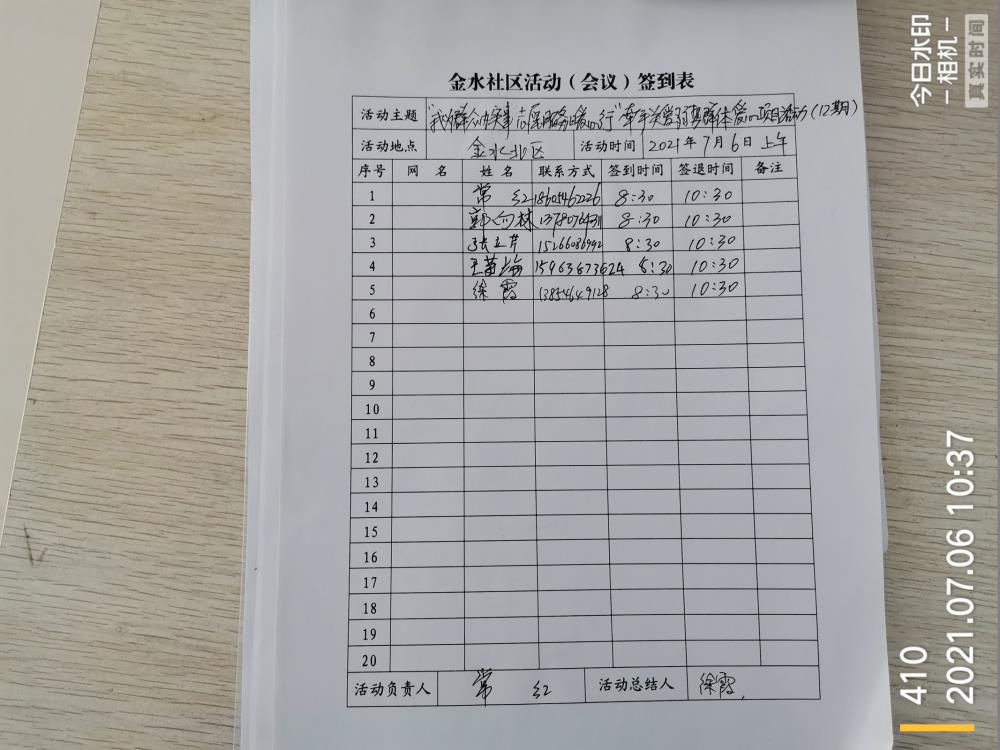 金水社区活动（会议）签到表
活动主题 "我为群众办实事志愿服务暖心行"牵手关爱弱势群体爱心项目活动(12期)
活动地点 金水北区 活动时间 2021年7月6日上午
序号 网 名 姓 名 联系方式 签到时间 签退时间 备注
1 常 红 8:30 10:30
2 8:30 10:30
3 15266086992 8:30 10:30
4 15963673624 8:30 10:30
5 徐 霞 13854649128 8:30 10:30
6
7
8
9
10
11
12
13
14
15
16
17
18
19
20
活动负责人 常 红 活动总结人 徐霞
今日水印
相机
真实时间
410
2021.07.06 10:37